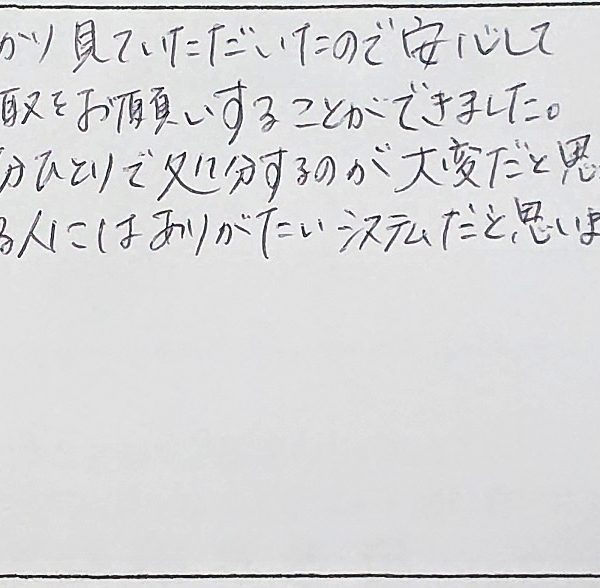 かり見ていただいたので安心して
取をお願いすることができました。
分ひとりで処分するのが大変だと思
る人にはありがたいシステムだと思いま